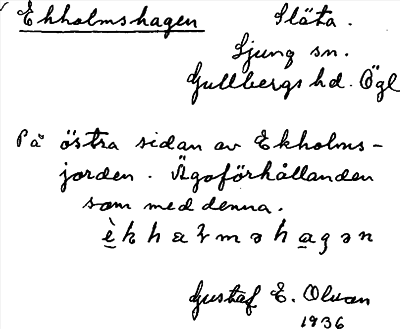 Ekholmshagen Släta.
Ljung sn.
Gullbergs hd. Ögl
På östra sidan av Ekholms-
jorden. Ägoförhållanden
som med denna.
Gustaf E. Olson
1936